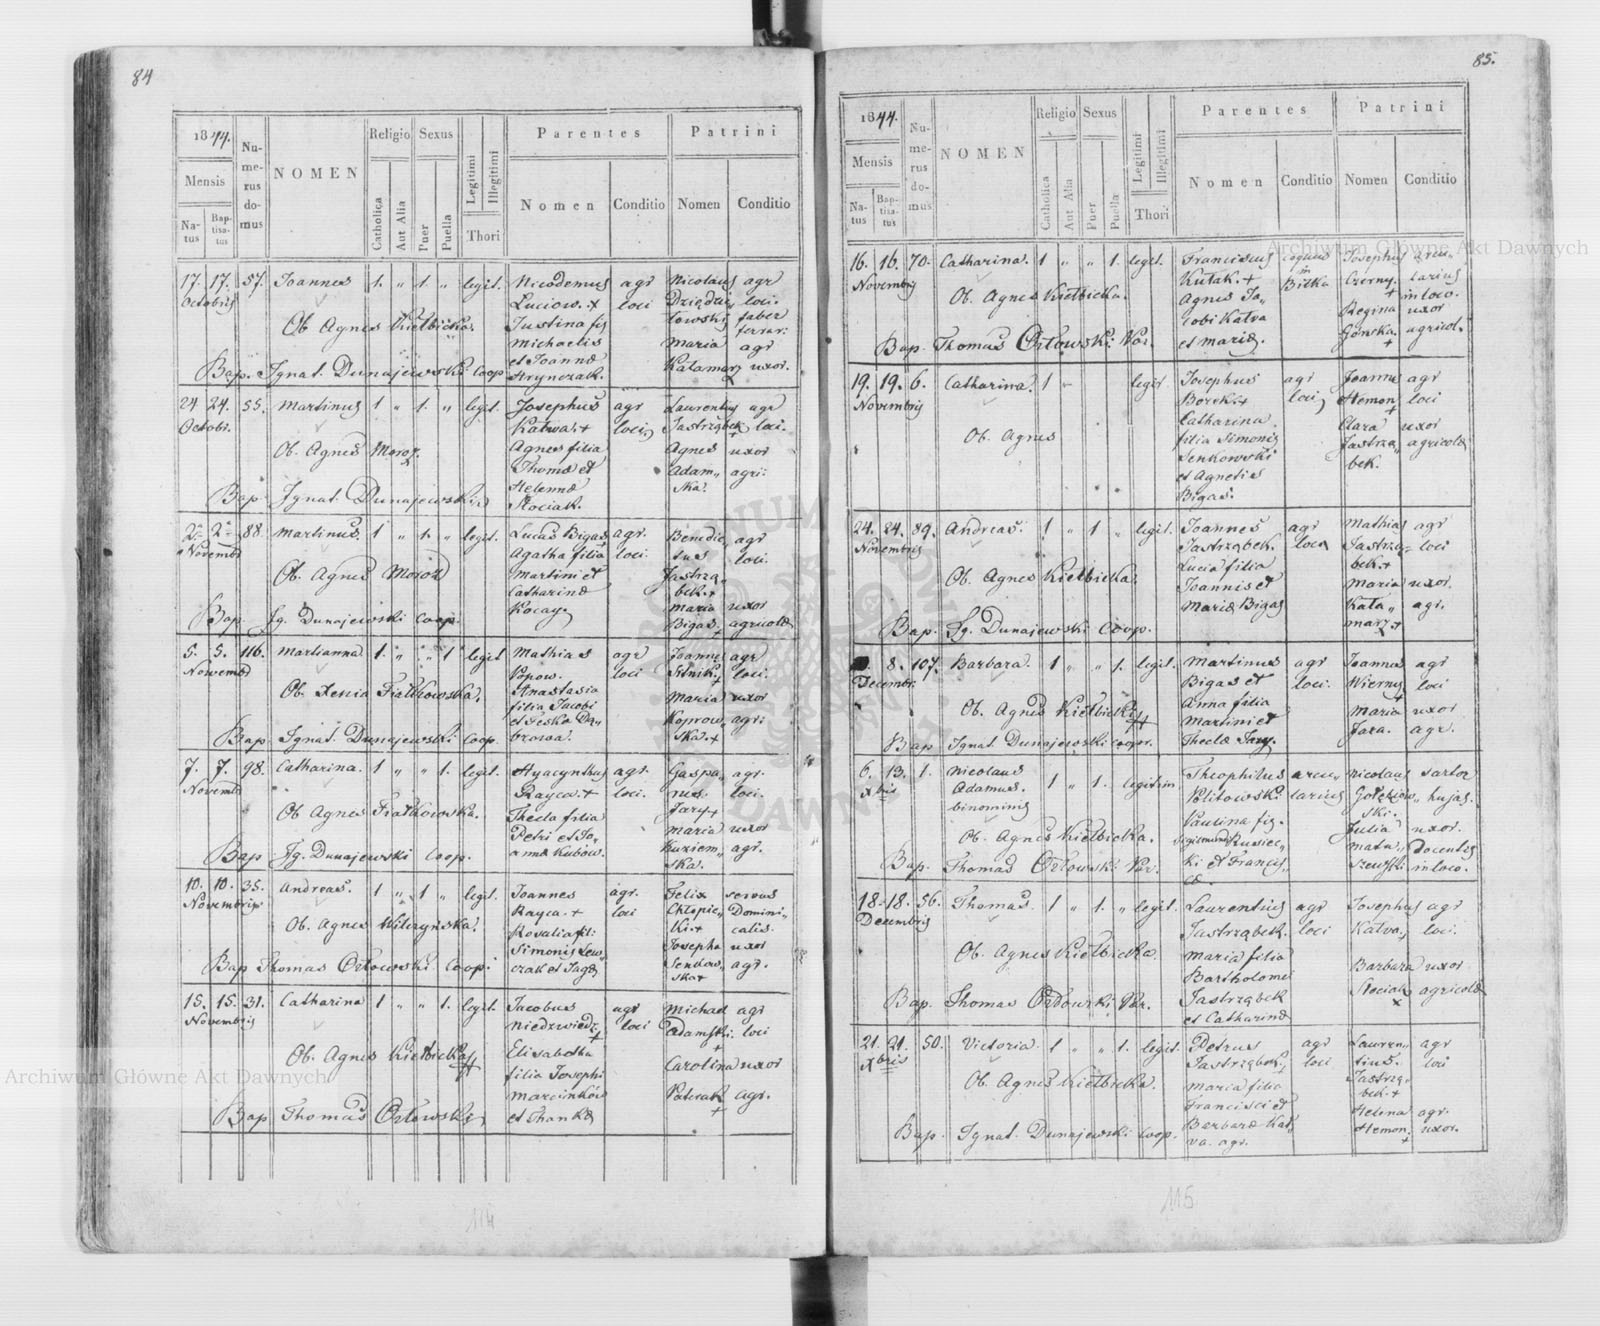 84
1844.
Mensis
Na-
tus
Bap-
tisa-
tus
Nu-
me-
rus
do-
mus
NOMEN
Religio
Catholica
Aut Alia
Sexus
Puer
Puella
Legitimi
Illegitimi
Thori
Parentes
Nomen
Conditio
Patrini
Nomen
Conditio
17. 17. 57. Joannes 1. " 1. " legit. Nicodemus agr Nicolaus agr
Octobris Luciow. + loci Dziędzie, loci.
Ob Agnes Kiełbicka. Justina fig łowski faber
Michaelis ferrar:
et Joannæ Maria agr
Bap. Ignat. Dunajewski Coop Hrynczak. Katamarz uxor.
24 24. 55. Martinus 1 " 1. " legit. Josephus agr Laurentius agr
Octobr. Katwa. + loci, Jastrząbek loci.
Ob. Agnes Moroz. Agnes filia Agnes uxor
Thomæ et Adam„ agri:
Helennæ ska.
Bap. Ignat. Dunajewski Kociak.
2 2 88. Martinus. 1 " 1. " legit. Lucas Bigas agr. Benedic„ agr
Novembr Agatha filia loci. tus loci.
Ob. Agnes Moroz Martini et Jastrzą„
Catharinæ bek. +
Kocay. Maria uxor
Bap Ig. Dunajewski Coop. Bigas. + agricolæ
5. 5. 116. Marianna 1. " " 1 legit Mathias agr Joannes agr
Novembr Popow. loci Sitnik, loci.
Ob. Xenia Fiałkowska. Anastasia Maria uxor
filia Jacobi Koprow„ agr:
et Feska Dą„ ska. +
Bap. Ignat. Dunajewski Coop. browa.
7. 7. 98. Catharina. 1 " " 1. legit. Hyacynthus agr. Gaspa„ agr.
Novembr Rayca. + loci. rus. loci.
Ob Agnes Fiałkowska. Thecla filia Jary +
Petri et Jo„ Maria uxor
annæ Kubów. Kuziem„ agr.
Bap Ig. Dunajewski Coop. ska.
10. 10. 35. Andreas. 1 " 1 " legit. Joannes agr. Felix servus
Novembris Rayca. + loci Chłopic„ Domini„
Ob. Agnes Wilczyńska. Rosalia fil: ki. + calis.
Simonis Lew„ Josepha uxor
czak et Jagę Senkow„ agr.
Bap Thomas Orłowski Coop. ska +
15. 15. 31. Catharina 1 " " 1. legit. Jacobus agr Michael agr
Novembris Niedzwiedz loci Adamski. loci
Ob. Agnes Kiełbicka Elisabetha +
filia Josephi Carolina uxor
Marcinków Paterak agr.
Bap Thomas Orłowski et Hankæ +
114
85.
1844.
Mensis
Na-
tus
Bap-
tisa-
tus
Nu-
me-
rus
do-
mus
NOMEN
Religio
Catholica
Aut Alia
Sexus
Puer
Puella
Legitimi
Illegitimi
Thori
Parentes
Nomen
Conditio
Patrini
Nomen
Conditio
16. 16. 70. Catharina. 1 " " 1. legit. Franciscus coquus Josephus arcu„
Novembris Kutak. + in Czerny. larius
Ob. Agnes Kiełbicka. Agnes Ja„ Bilka + in loco.
cobi Katva Regina uxor
Bap. Thomas Orłowski Var. et Mariæ. Gonska. agricol.
19. 19. 6. Catharina. 1 " legit. Josephus agr Joannes agr
Novembris Borek. + loci, Hemon, loci
Catharina Clara uxor
Ob. Agnes filia Simonis Jastrzą„ agricolæ
Senkowski bek.
et Agnetis
Bigas.
24. 24. 89. Andreas. 1 " 1 " legit. Joannes agr Mathias agr
Novembris Jastrząbek. loci Jastrzą„ loci
Ob. Agnes Kiełbicka. Lucia filia bek. +
Joannis et Maria uxor.
Mariæ Bigas Kata„ agr.
Bap. Ig. Dunajewski Coop. marz. +
8. 107. Barbara. 1 " " 1. legit. Martinus agr Joannes agr
Decembr. Bigas et loci. Wierny, loci
Ob. Agnes Kiełbicka Anna filia Maria uxor
Martini et Jara. agr.
Bap Ignat. Dunajewski coopr. Theclæ Jary.
6. 13. 1. Nicolaus 1 " 1. " legitim. Theophilus arcu„ Nicolaus sartor
Xbris Adamus. Politowski larius Gołębiow„ hujas.
binominis Paulina fig. ski.
Ob. Agnes Kiełbicka. Sigismundi Rusiec„ Julia uxor.
Bap. Thomas Orłowski Var. ki et Francis„ Matu„ Docentis
cæ. szewski in loco.
18. 18. 56. Thomas. 1 " 1. " legit. Laurentius agr Josephus agr
Decembris Jastrząbek. loci Katva, loci.
Ob. Agnes Kiełbicka. Maria filia
Bartholomei Barbara uxor
Bap. Thomas Orłowski Var. Jastrząbek Kociak agricolæ
et Catharinæ
21. 21. 50. Victoria. 1 " " 1. legit. Petrus agr Lauren„ agr
Xbris Jastrząbek, loci tius. loci
Ob. Agnes Kiełbicka. Maria filia Jastrzą„
Francisci et bek. +
Barbaræ Kat„ Helena agr.
Bap. Ignat. Dunajewski Coop. va. agr. Hemon. uxor.
115
Archiwum Główne Akt Dawnych
Archiwum Główne Akt Dawnych